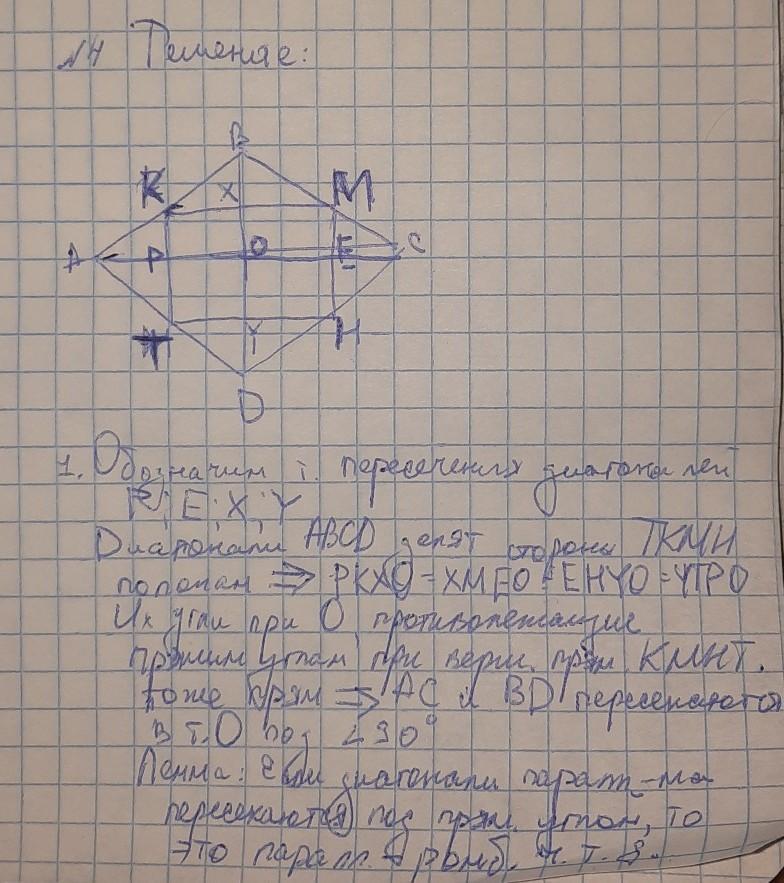 №4 Решение:
B
K X M
A P O E C
T Y H
D
1. Обозначим т. пересечения диагоналей
P; E; X; Y
Диагонали ABCD делят стороны TKMH
пополам => PKXO = XMEO = EHYO = YTPO
Их углы при O, противолежащие
прямым углам при верш. прям KMHT.
тоже прям => AC и BD пересекаются
в т.O под ∠90°
Лемма: Если диагонали паралл-ма
пересекаются под прям. углом, то
это паралл. - ромб. ч.т.д.